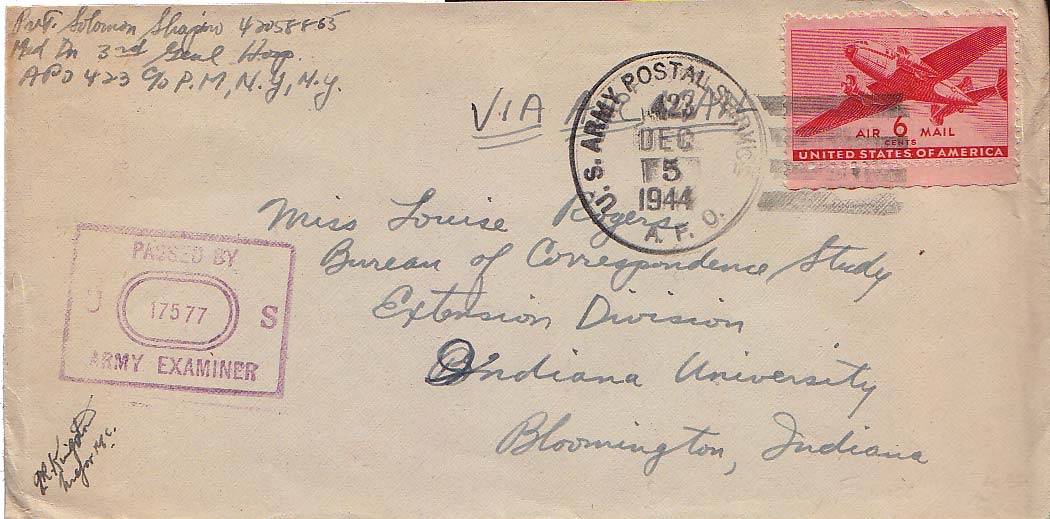 Pvt. Solomon Shapiro 42058865
Med Dn 3rd Genl Hosp.
APO 423 c/o P.M., N.Y., N.Y.
VIA
U.S. ARMY POSTAL SERVICE
423
DEC
5
1944
A. P. O.
AIR 6 MAIL
CENTS
UNITED STATES OF AMERICA
Miss Louise Rogers
Bureau of Correspondence Study
Extension Division
Indiana University
Bloomington, Indiana
PASSED BY
U 17577 S
ARMY EXAMINER
Major M.C.